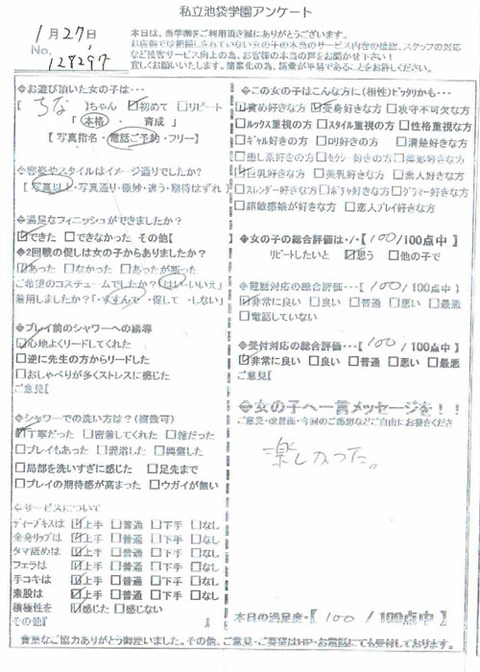 私立池袋学園アンケート
1月27日
No. 128297
本日は、当学園をご利用頂き誠にありがとうございます。
お店側では把握しきれていない女の子の本当のサービス内容の確認、スタッフの対応
など接客サービス向上の為、お客様の本当の声をお聞かせ下さい!
◆お遊び頂いた女の子は…
【 ちな 】ちゃん ☑初めて □リピート
【 本格 ・ 育成 】
【写真指名・電話ご予約・フリー】
スタイルはイメージ通りでしたか?
【写真以上・写真通り・微妙・違う・期待はずれ】
◆満足なフィニッシュができましたか?
☑できた □できなかった その他【
◆2回戦の促しは女の子からありましたか?
☑あった □なかった □あったが断った
ご希望のコスチュームでしたか?「はい・いいえ」
着用しましたか?「・すすんで ・促して ・しない」
◆プレイ前のシャワーへの誘導
☑心地よくリードしてくれた
□逆に先生の方からリードした
□おしゃべりが多くストレスに感じた
ご意見【
◆シャワーでの洗い方は?(複数可)
☑丁寧だった □密着してくれた □雑だった
□プレイもあった □混浴した □興奮した
□局部を洗いすぎに感じた □足先まで
□プレイの期待感が高まった □ウガイが無い
◆サービスについて
ディープキスは ☑上手 □普通 □下手 □なし
全身リップは ☑上手 □普通 □下手 □なし
タマ舐めは ☑上手 □普通 □下手 □なし
フェラは ☑上手 □普通 □下手 □なし
手コキは ☑上手 □普通 □下手 □なし
素股は ☑上手 □普通 □下手 □なし
積極性を ☑感じた □感じない
その他【 】
◆この女の子はこんな方に(相性)ピッタリかも…
☑責め好きな方 ☑受身好きな方 □攻守不可欠な方
□ルックス重視の方 □スタイル重視の方 □性格重視な方
□ギャル好きの方 □ロリ好きの方 □清楚好きな方
□癒し系好きの方 □セクシー好きの方 □美形好きな方
☑巨乳好きな方 □美乳好きな方 □素人好きな方
□スレンダー好きな方 □ポチャ好きな方 □グラマー好きな方
□超敏感娘が好きな方 □恋人プレイ好きな方
◆女の子の総合評価は・・【 100 /100点中 】
リピートしたいと ☑思う □他の子で
◆電話対応の総合評価…【 100 /100点中 】
☑非常に良い □良い □普通 □悪い □最悪
□電話していない
◆受付対応の総合評価…【 100 /100点中 】
☑非常に良い □良い □普通 □悪い □最悪
ご意見【
◆女の子へ一言メッセージを!!
楽しかった。
本日の満足度・【 100 /100点中 】
貴重なご協力ありがとう御座いました。その他、ご意見・ご要望はHP・お電話にても受付しております。